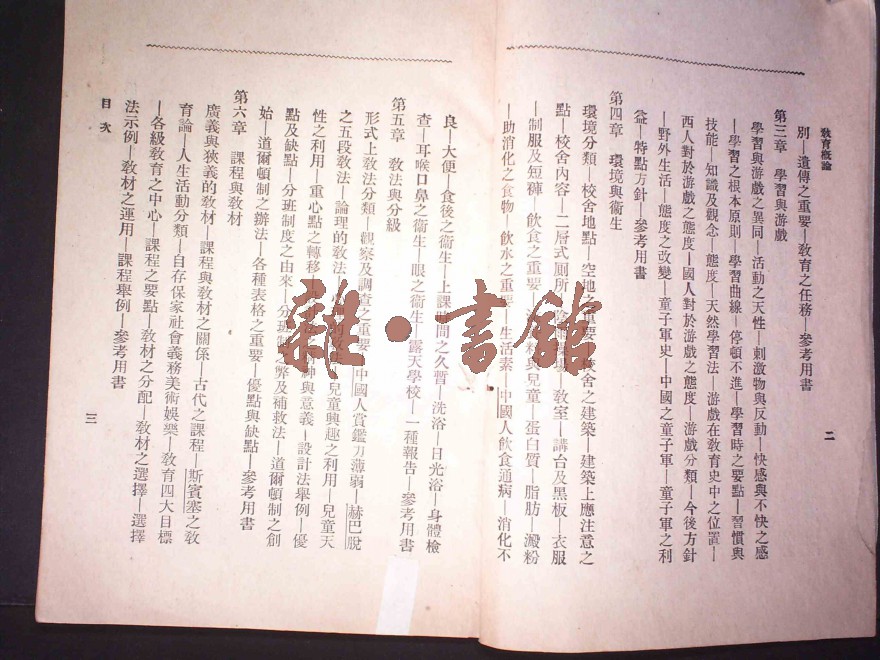 教育概論
二
別—遺傳之重要—教育之任務—參考用書
第三章　學習與游戲
學習與游戲之異同—活動之天性—刺激物與反動—快感與不快之感
—學習之根本原則—學習曲線—停頓不進—學習時之要點—習慣與
技能—知識及觀念—態度—天然學習法—游戲在教育史中之位置—
西人對於游戲之態度—國人對於游戲之態度—游戲分類—今後方針
—野外生活—態度之改變—童子軍史—中國之童子軍—童子軍之利
益—特點方針—參考用書
第四章　環境與衞生
環境分類—校舍地點—空地之重要—校舍之建築—建築上應注意之
點—校舍內容—二層式厠所—教室—講台及黑板—衣服
—制服及短褲—飲食之重要—與兒童—蛋白質—脂肪—澱粉
—助消化之食物—飲水之重要—生活素—中國人飲食通病—消化不
良—大便—食後之衞生—上課時間之久暫—洗浴—日光浴—身體檢
查—耳喉口鼻之衞生—眼之衞生—露天學校—一種報告—參考用書
第五章　教法與分級
形式上教法分類—觀察及調查之重要—中國人賞鑑力薄弱—赫巴脫
之五段教法—論理的教法—兒童興趣之利用—兒童天
性之利用—重心點之轉移—神與意義—設計法舉例—優
點及缺點—分班制度之由來—分班之弊及補救法—道爾頓制之創
始—道爾頓制之辦法—各種表格之重要—優點與缺點—參考用書
第六章　課程與教材
廣義與狹義的教材—課程與教材之關係—古代之課程—斯賓塞之教
育論—人生活動分類—自存保家社會義務美術娛樂—教育四大目標
—各級教育之中心—課程之要點—教材之分配—教材之選擇—選擇
法示例—教材之運用—課程舉例—參考用書
目次
三
雜·書館